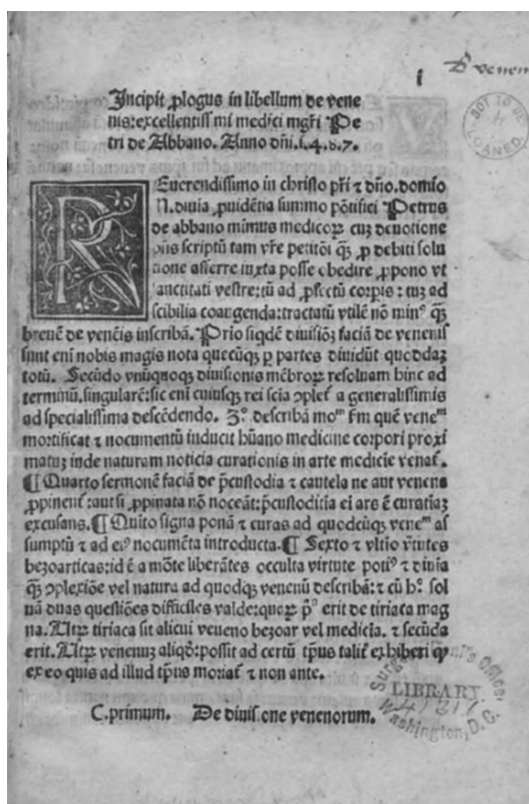 i
De venen
NOT TO BE
LOANED
Incipit ꝓlogus in libellum de vene
nis: excellentiss mi medici mgr̃i Pe
tri de Abbano. Anno dñi. 1. 4. 8. 7.
REuerendissimo in christo pr̃i ⁊ dño. domino
N. diuia ꝓuidẽtia summo põtifici Petrus
de abbano minimus medicoꝝ cuz deuotione
pñs scriptũ tam vr̃e petitõi qꝫ ꝓ debiti solu
tione afferre iuxta posse obedire ꝓpono vt
sanctitati vestre: tũ ad ꝓfectũ corpis: tuz ad
scibilia coaugenda: tractatũ vtilẽ nõ minꝰ qꝫ
breuẽ de venẽis inscribã. Prio siqdẽ diuisiõꝫ faciã de venenis
sunt eni nobis magis nota quecũqꝫ p partes diuidũt quoddaz
totũ. Secũdo vnũquoqꝫ diuisionis mẽbroꝝ resoluam hinc ad
terminũ. singularẽ: sic eni cuiusqꝫ rei scia ꝯplet᷑ a generalissimis
ad specialissima descẽdendo. 3º. describã moᵐ fm quẽ veneᵐ
mortificat ⁊ nocumẽtũ inducit hũano medicine corpori proxi
matuꝫ inde naturam noticia curationis in arte medicie venat᷑.
¶ Quarto sermonẽ faciã de p̃custodia ⁊ cautela ne aut venena
ꝓpinent᷑: aut si ꝓpinata nõ noceãt: p̃custoditia ei ars ẽ curatiaꝫ
excusans. ¶ Quito signa ponã ⁊ curas ad quodcũqꝫ veneᵐ as
sumptũ ⁊ ad eiꝰ nocumẽta introducta. ¶ Sexto ⁊ vltio v̓tutes
bezoarticas: id ẽ a mõte liberãtes occulta virtute potiꝰ ⁊ diuia
qꝫ ꝯplexiõe vel natura ad quodqꝫ venenũ describã: ⁊ cũ hº. sol
uã duas questiões difficiles valde: queꝝ pº erit de tiriaca mag
na. Vtꝝ tiriaca sit alicui veneno bezoar vel medicia. ⁊ secũda
erit. Vtꝝ venenuz aliqõ: possit ad certũ tp̃us talit᷑ exhiberi qꝫ
ex eo quis ad illud tp̃us moriat᷑ ⁊ non ante.
C. primum. De diuis. one venenorum.
Surgeon Gen'l's Office
LIBRARY
Washington, D. C.